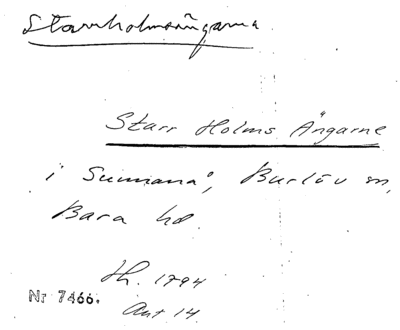 Starrholmsängarna
Starr Holms Ängarne
i Sunnanå, Burlöv sn,
Bara hd.
Th. 1794
Nr 7466.
Akt 14